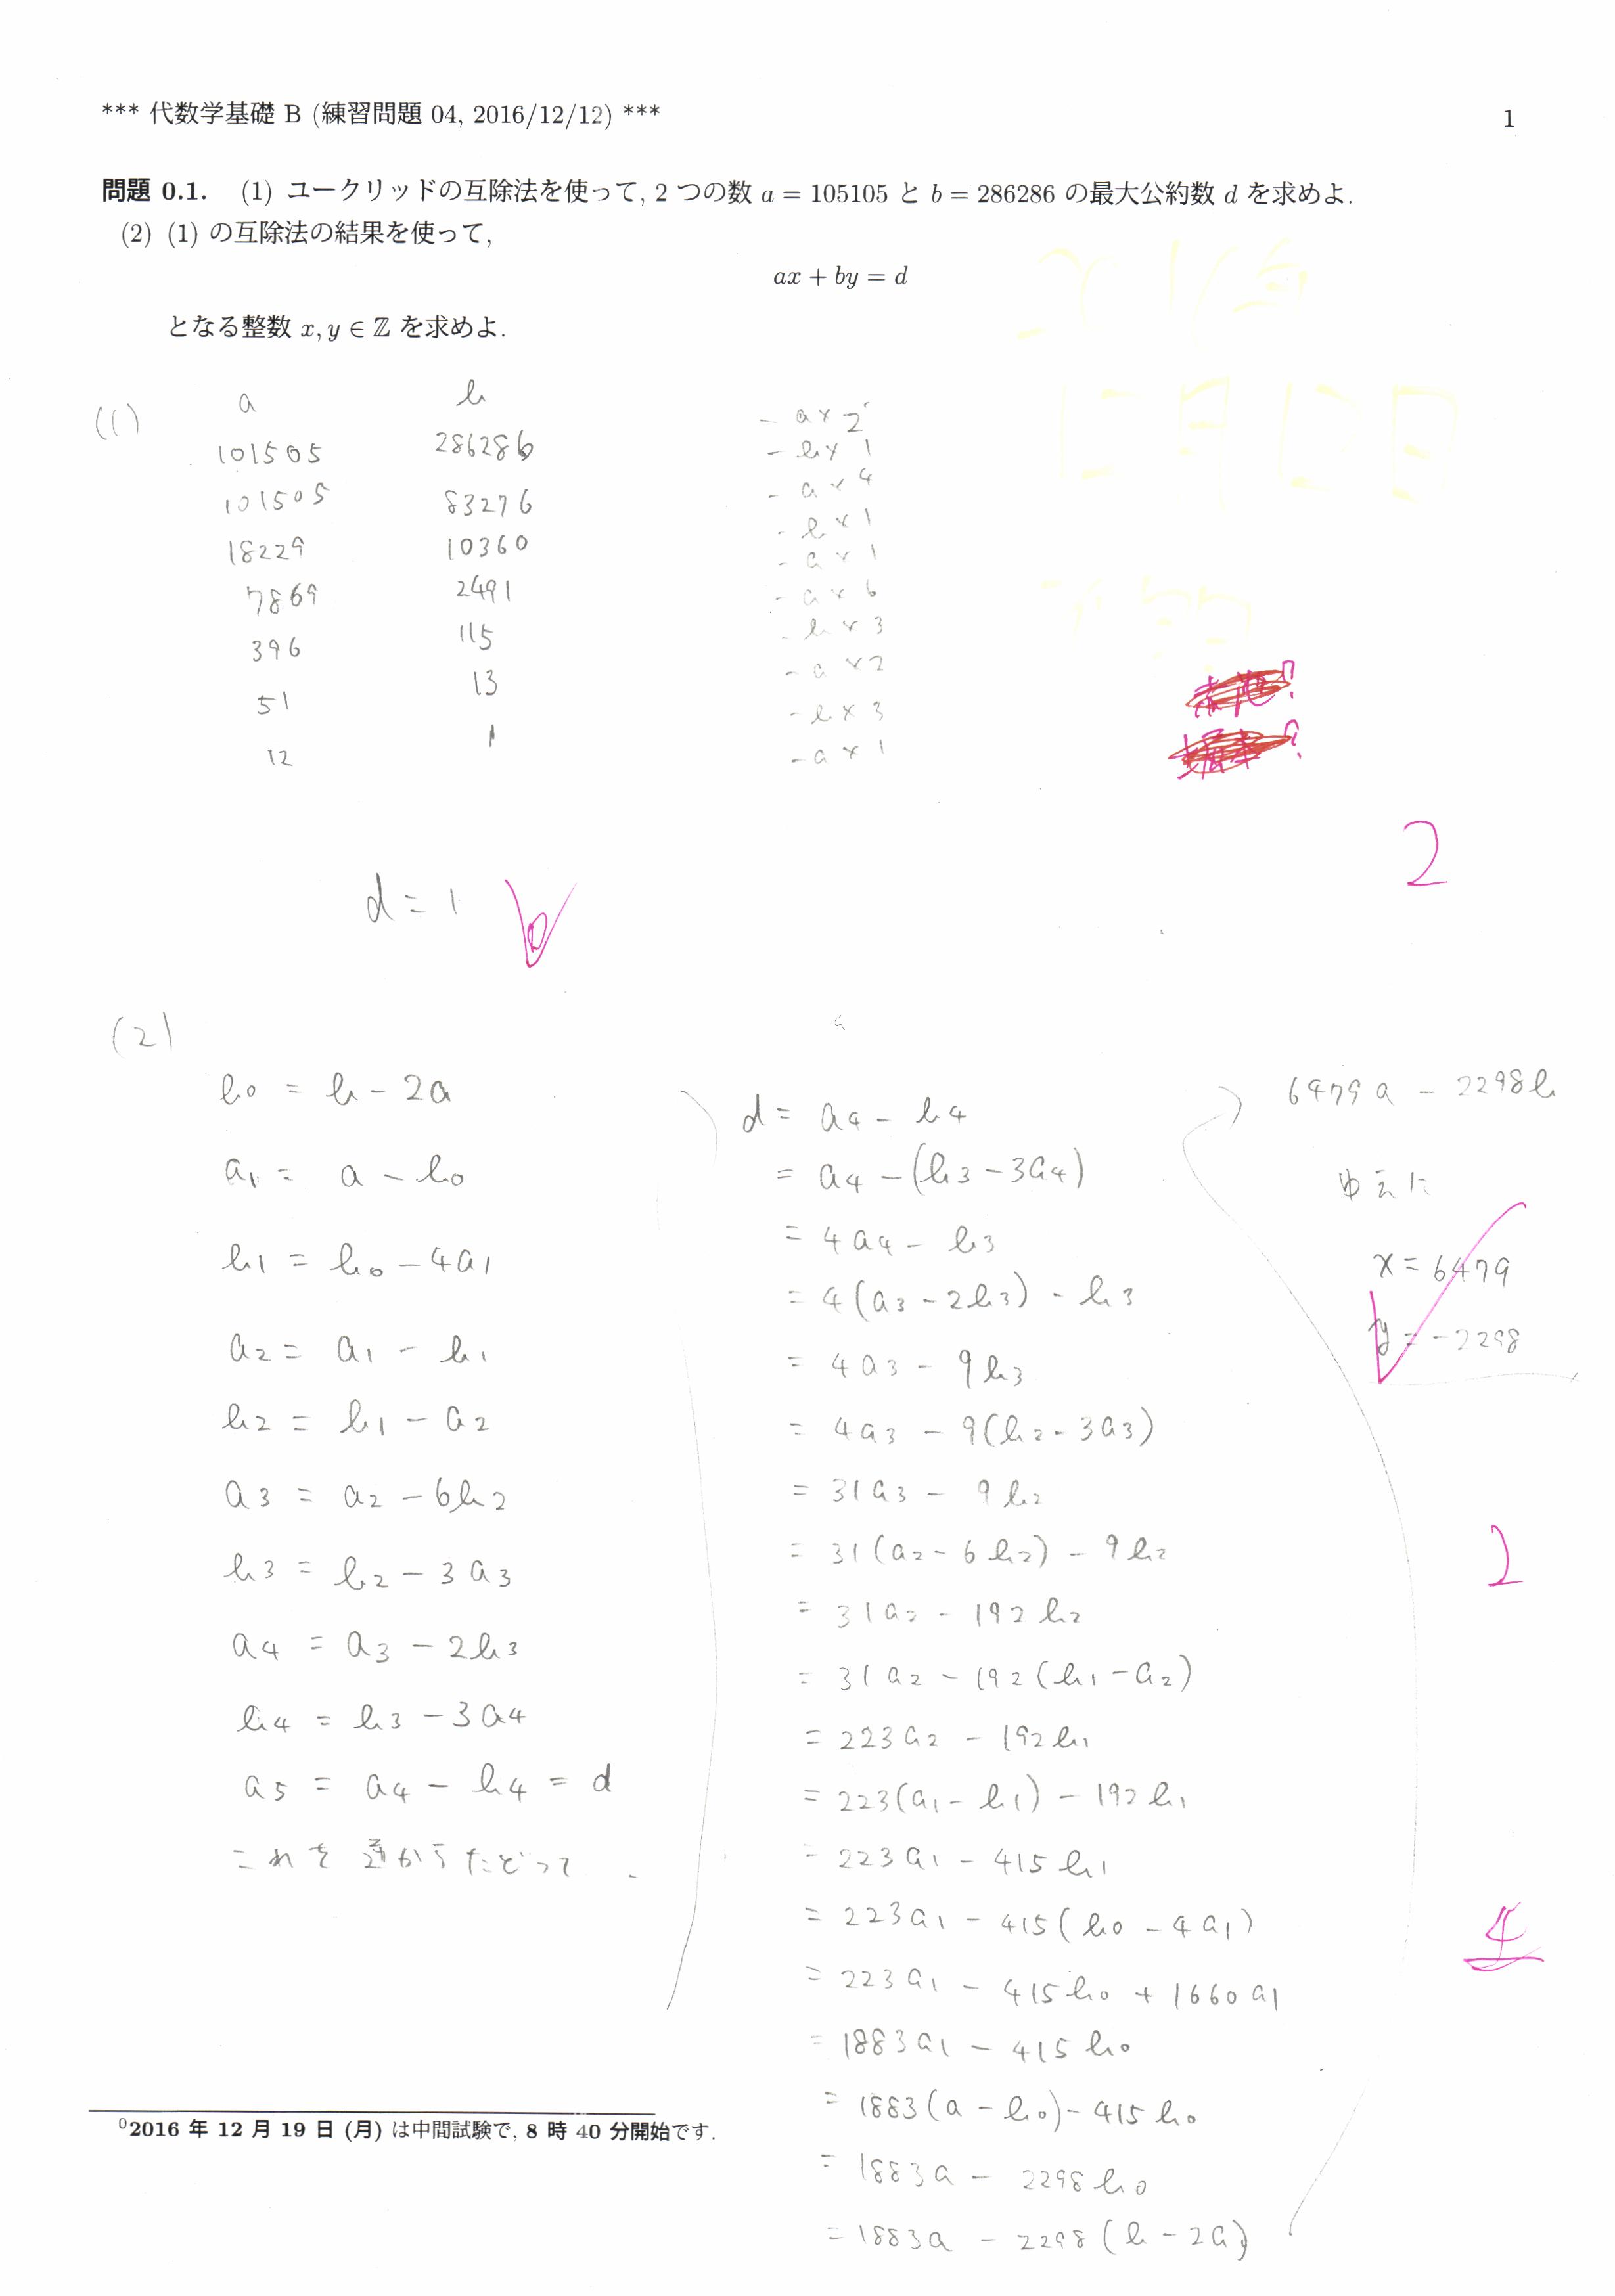 *** 代数学基礎 B (練習問題 04, 2016/12/12) ***
1
問題 0.1. (1) ユークリッドの互除法を使って, 2 つの数 a = 105105 と b = 286286 の最大公約数 d を求めよ.
(2) (1) の互除法の結果を使って,
ax + by = d
となる整数 x, y ∈ ℤ を求めよ.
(1)
a b
101505 286286
101505 83276
18229 10360
7869 2491
396 115
51 13
12 1
- a × 2
- b × 1
- a × 4
- b × 1
- a × 1
- a × 6
- b × 3
- a × 2
- b × 3
- a × 1
2
d = 1
(2)
b0 = b - 2a
a1 = a - b0
b1 = b0 - 4a1
a2 = a1 - b1
b2 = b1 - a2
a3 = a2 - 6b2
b3 = b2 - 3a3
a4 = a3 - 2b3
b4 = b3 - 3a4
a5 = a4 - b4 = d
これを逆からたどって
d = a4 - b4
= a4 - (b3 - 3a4)
= 4a4 - b3
= 4(a3 - 2b3) - b3
= 4a3 - 9b3
= 4a3 - 9(b2 - 3a3)
= 31a3 - 9b2
= 31(a2 - 6b2) - 9b2
= 31a2 - 192b2
= 31a2 - 192(b1 - a2)
= 223a2 - 192b1
= 223(a1 - b1) - 192b1
= 223a1 - 415b1
= 223a1 - 415(b0 - 4a1)
= 223a1 - 415b0 + 1660a1
= 1883a1 - 415b0
= 1883(a - b0) - 415b0
= 1883a - 2298b0
= 1883a - 2298(b - 2a)
6479a - 2298b
ゆえに
x = 6479
y = -2298
2
4
0 2016 年 12 月 19 日 (月) は中間試験で, 8 時 40 分開始です.